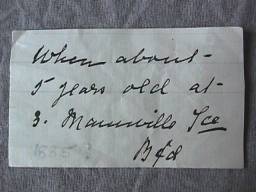 When about
5 years old at
3. Mannville Tce
Bfd
1885?